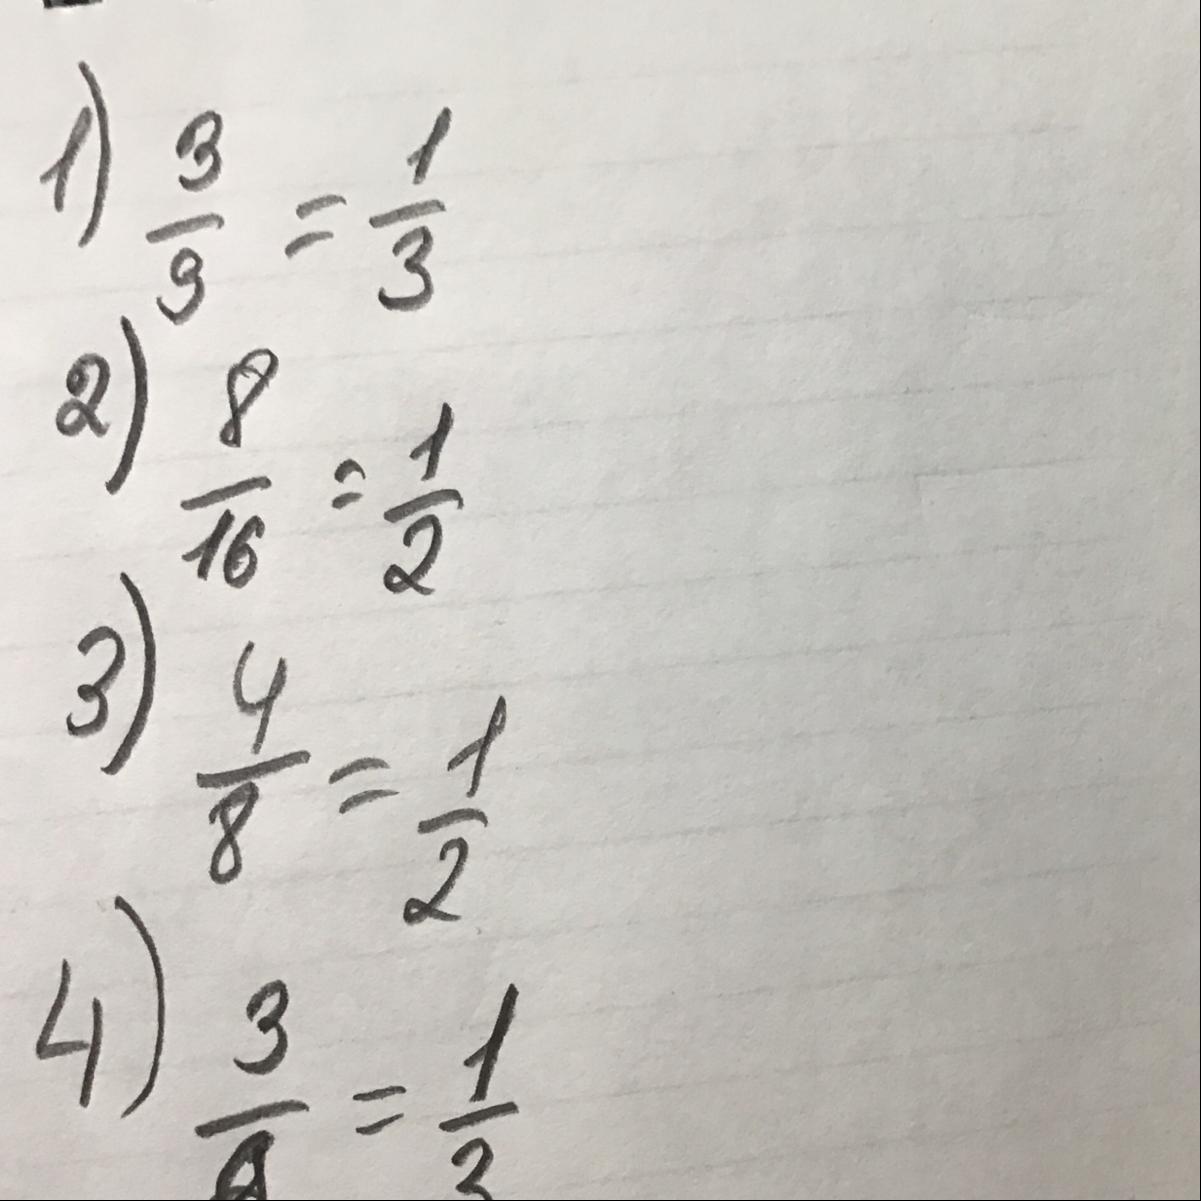 1) 3/9 = 1/3
2) 8/16 = 1/2
3) 4/8 = 1/2
4) 3/9 = 1/3